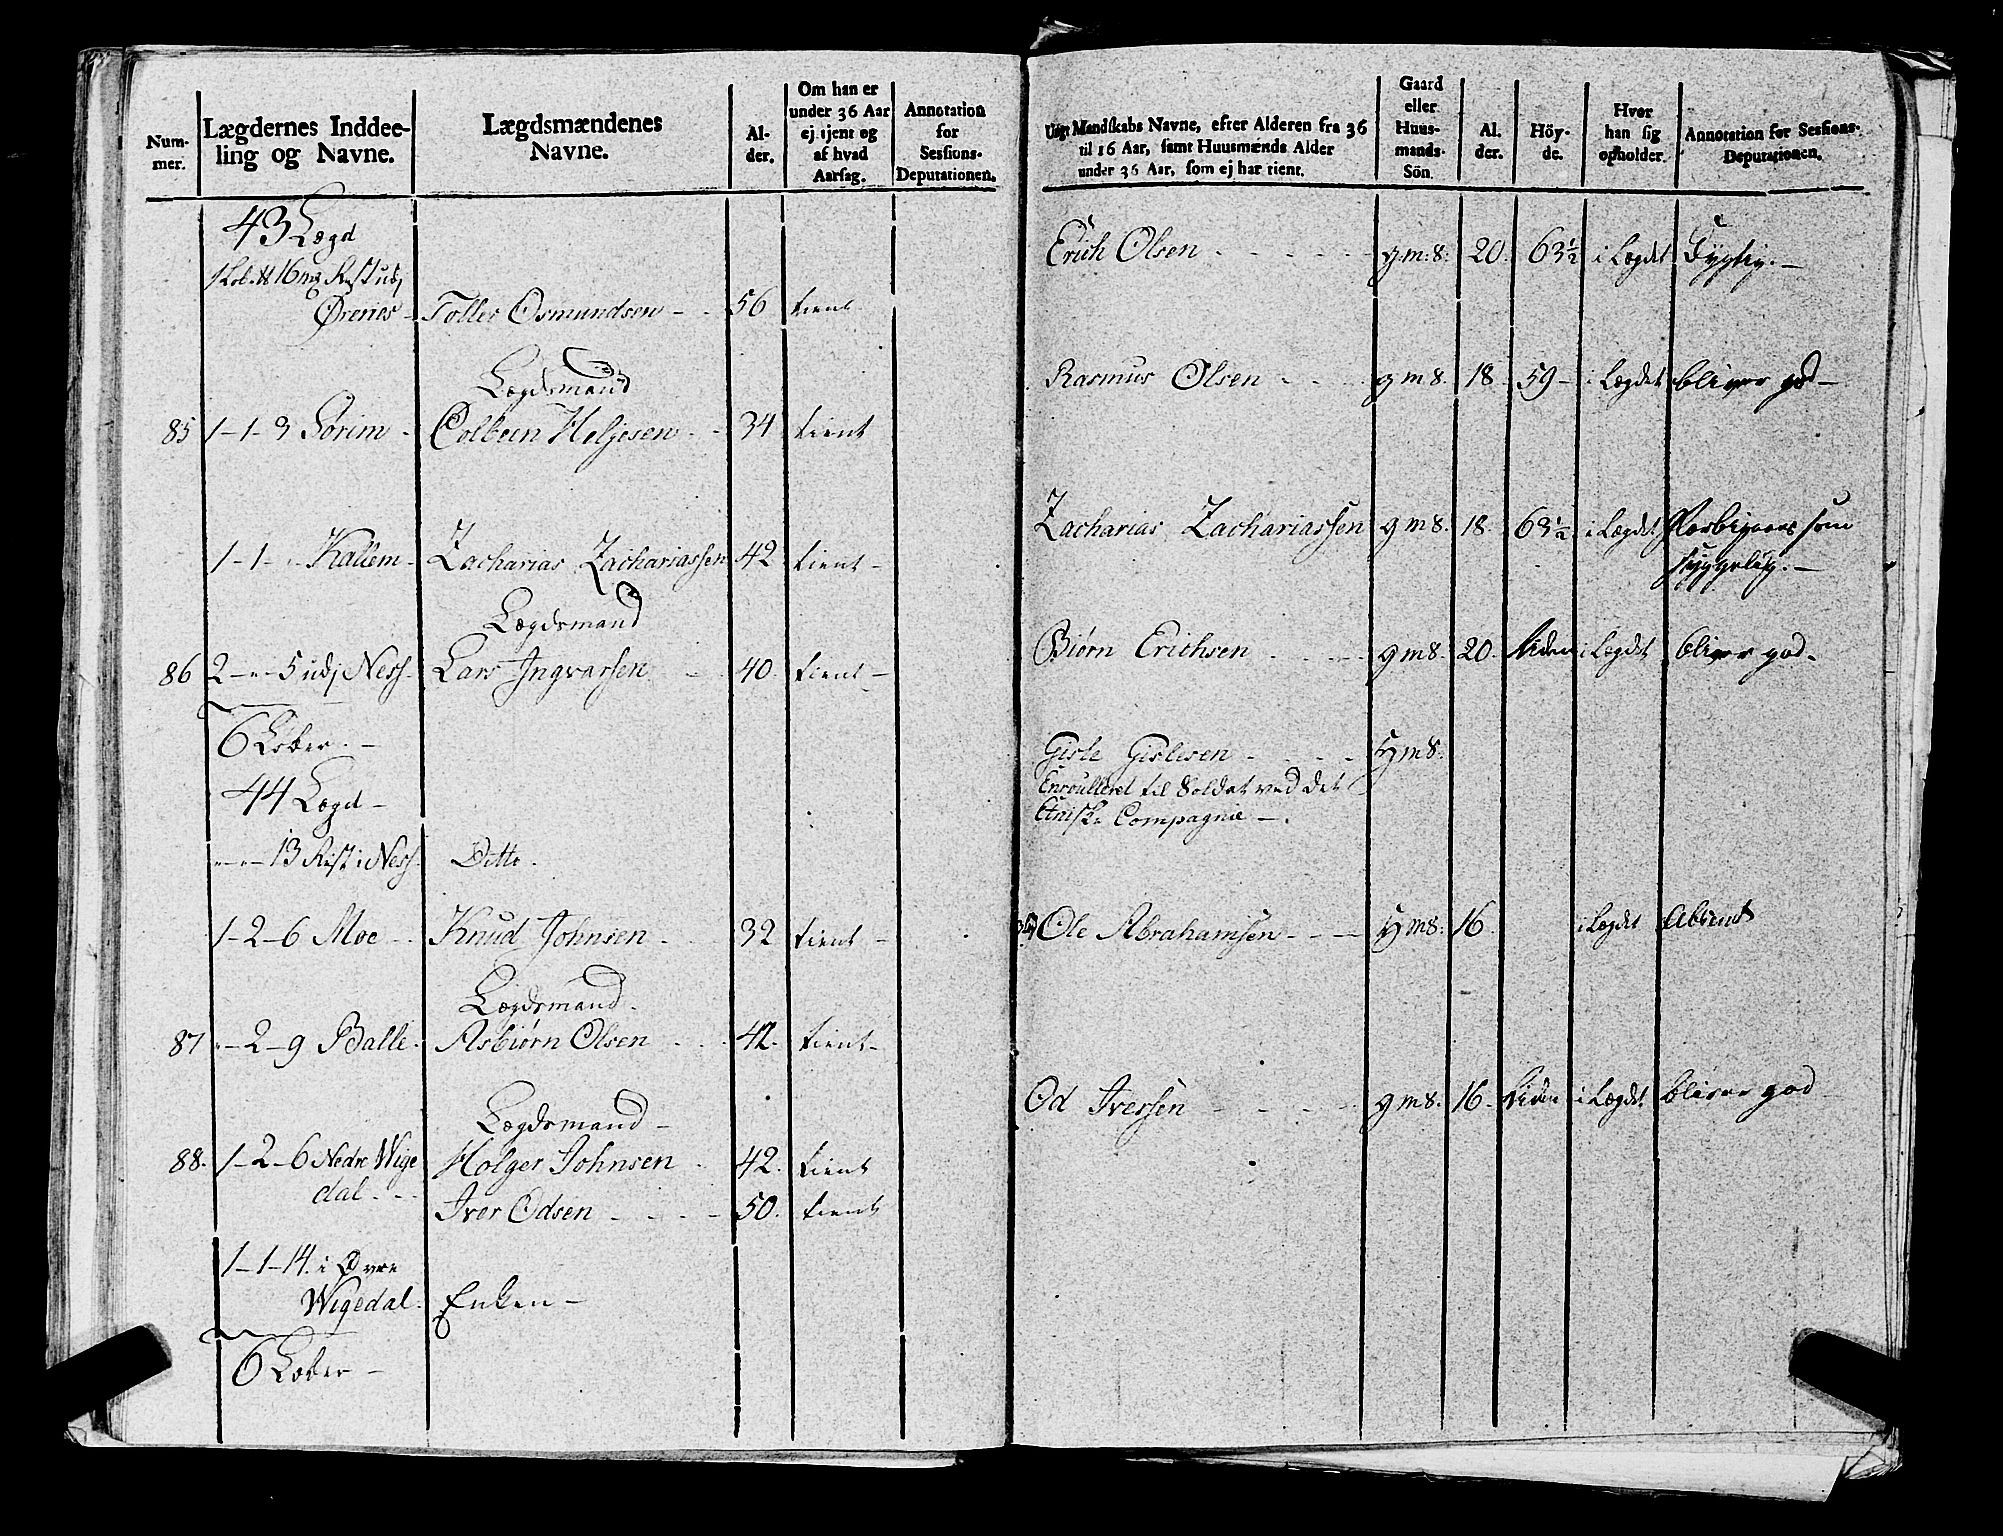 Num-
mer.
Lægdernes Inddee-
ling og Navne.
Lægdsmændenes
Navne.
Al-
der.
Om han er
under 36 Aar
ej tjent og
af hvad
Aarsag.
Annotation
for
Sessions-
Deputationen.
43 Lægd
16 mg Rest udj
Ørenes - Toller Osmundsen - 56 tient
Lægdsmand
85 1-1-3 Sørim - Colbeen Heljesen - 34 tient
1-1- " Kallem - Zacharias Zachariassen 42 tient -
Lægdsmand
86 2-"-5 udj Ness - Lars Ingvarsen 40. tient -
6 Løber. -
44 Lægd -
"-"-13 Rest i Ness. Ditto.
1-2-6 Moe - Knud Johnsen 32 tient -
Lægdsmand.
87 "-2-9 Balle. Asbiørn Olsen 42. tient -
Lægdsmand -
88. 1-2-6 Nedre Wige Holger Johnsen 42. tient
dal - Iver Odsen - 50. tient
1-1-14. i Øvre
Wigedal. Enken -
6 Løber -
Ungt Mandskabs Navne, efter Alderen fra 36
til 16 Aar, samt Huusmænds Alder
under 36 Aar, som ej har tient.
Gaard
eller
Huus-
mands-
Sön.
Al.
der.
Höy-
de.
Hvor
han sig
opholder.
Annotation for Sessions-
Deputationen.
Erich Olsen - g.m.s. 20. 63 1/2 i Lægdet
Rasmus Olsen - g m s. 18. 59 - i Lægdet bliver god -
Zacharias Zachariassen g m s. 18. 63 1/2 i Lægdet som
sygelig. -
Biørn Erichsen - g m s. 20. liden i Lægdet bliver god.
Gisle Gislesen - H m s.
Enroulleret til Soldat ved det
Etniske Compagnie -.
Ole Abrahamsen - H m s. 16. i Lægdet Absent
Od Iversen - g m s. 16. liden i Lægdet bliver god